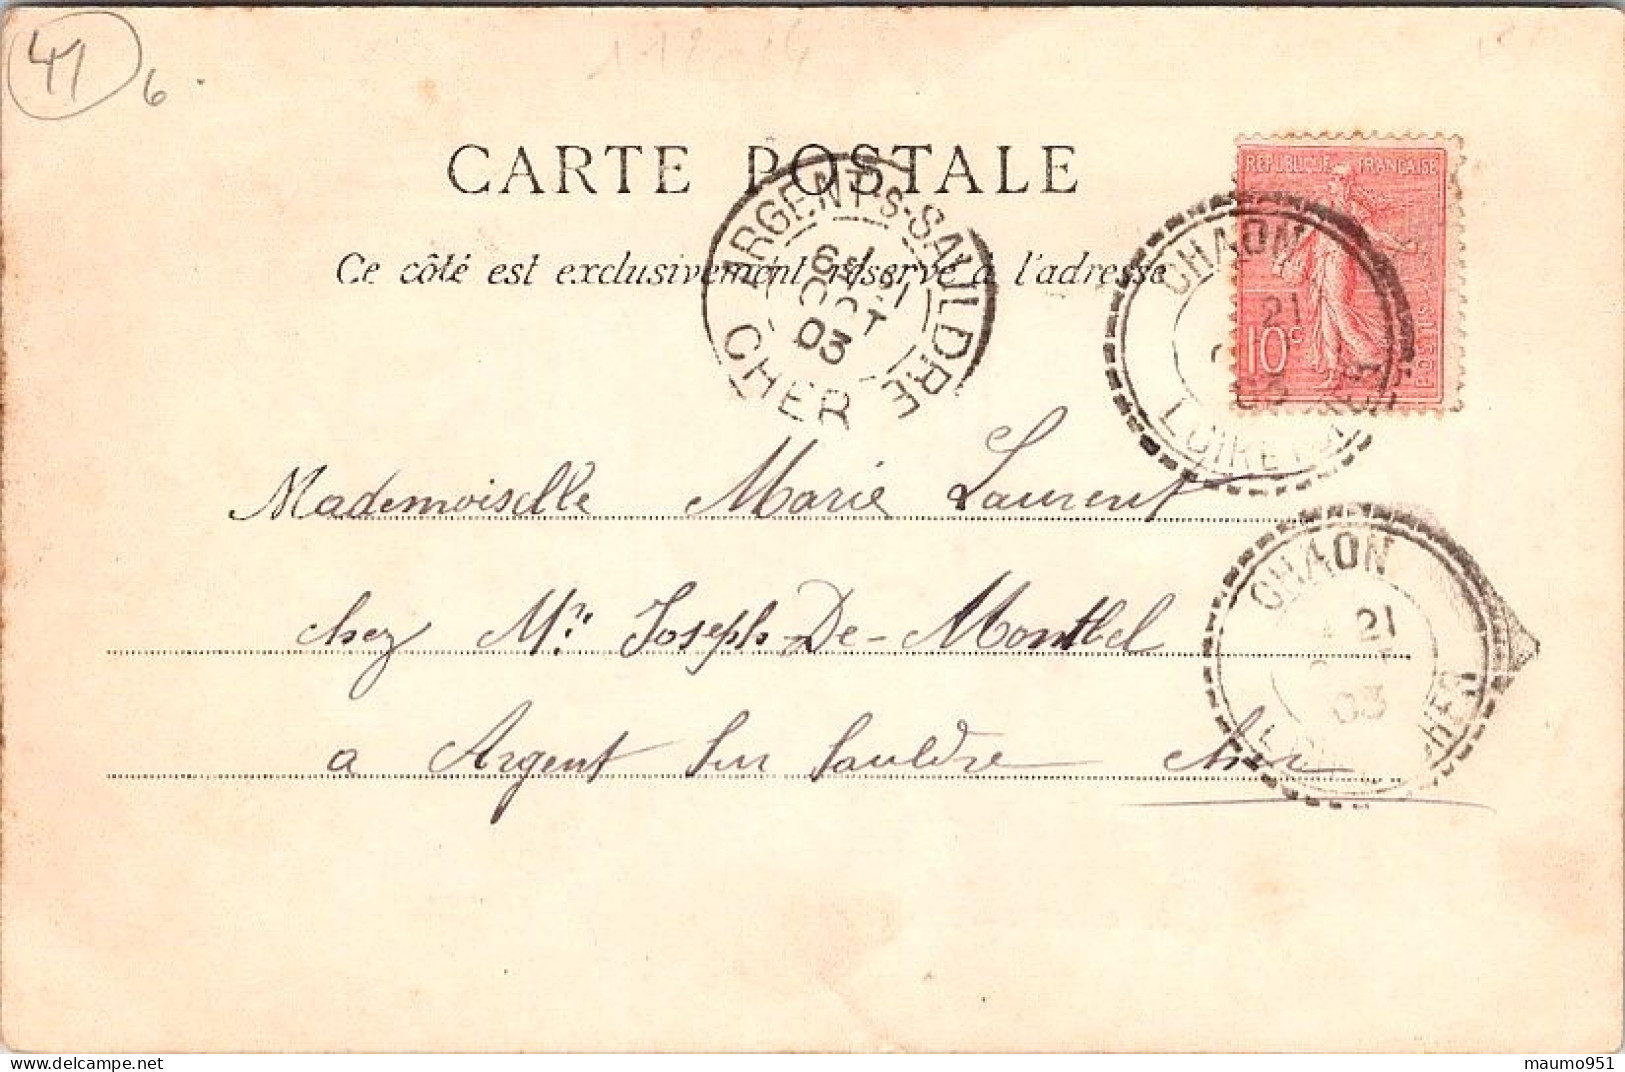 41
6
CARTE POSTALE
Ce côté est exclusivement réservé à l'adresse
REPUBLIQUE FRANÇAISE
10c
POSTES
ARGENT-S-SAULDRE
21
OCT
03
CHER
CHAON
21
03
LOIR ET CHER
Mademoiselle Marie Laurent
chez Mr Joseph-De-Montbel
a Argent sur Sauldre Cher
CHAON
21
03
LOIR ET CHER
maumo951